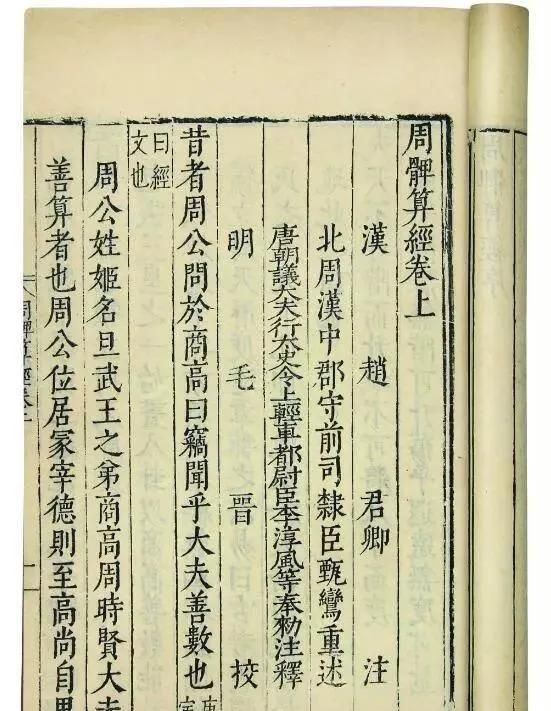 周髀算經卷上
漢 趙 君卿 注
北周漢中郡守前司隸臣甄鸞重述
唐朝議大夫行太史令上輕車都尉臣李淳風等奉勑注釋
明 毛 晉 挍
昔者周公問於商高曰竊聞乎大夫善數也
曰經
文也
周公姓姬名旦武王之弟商高周時賢大夫
善算者也周公位居冢宰德則至高尚自
周髀算經卷上
一